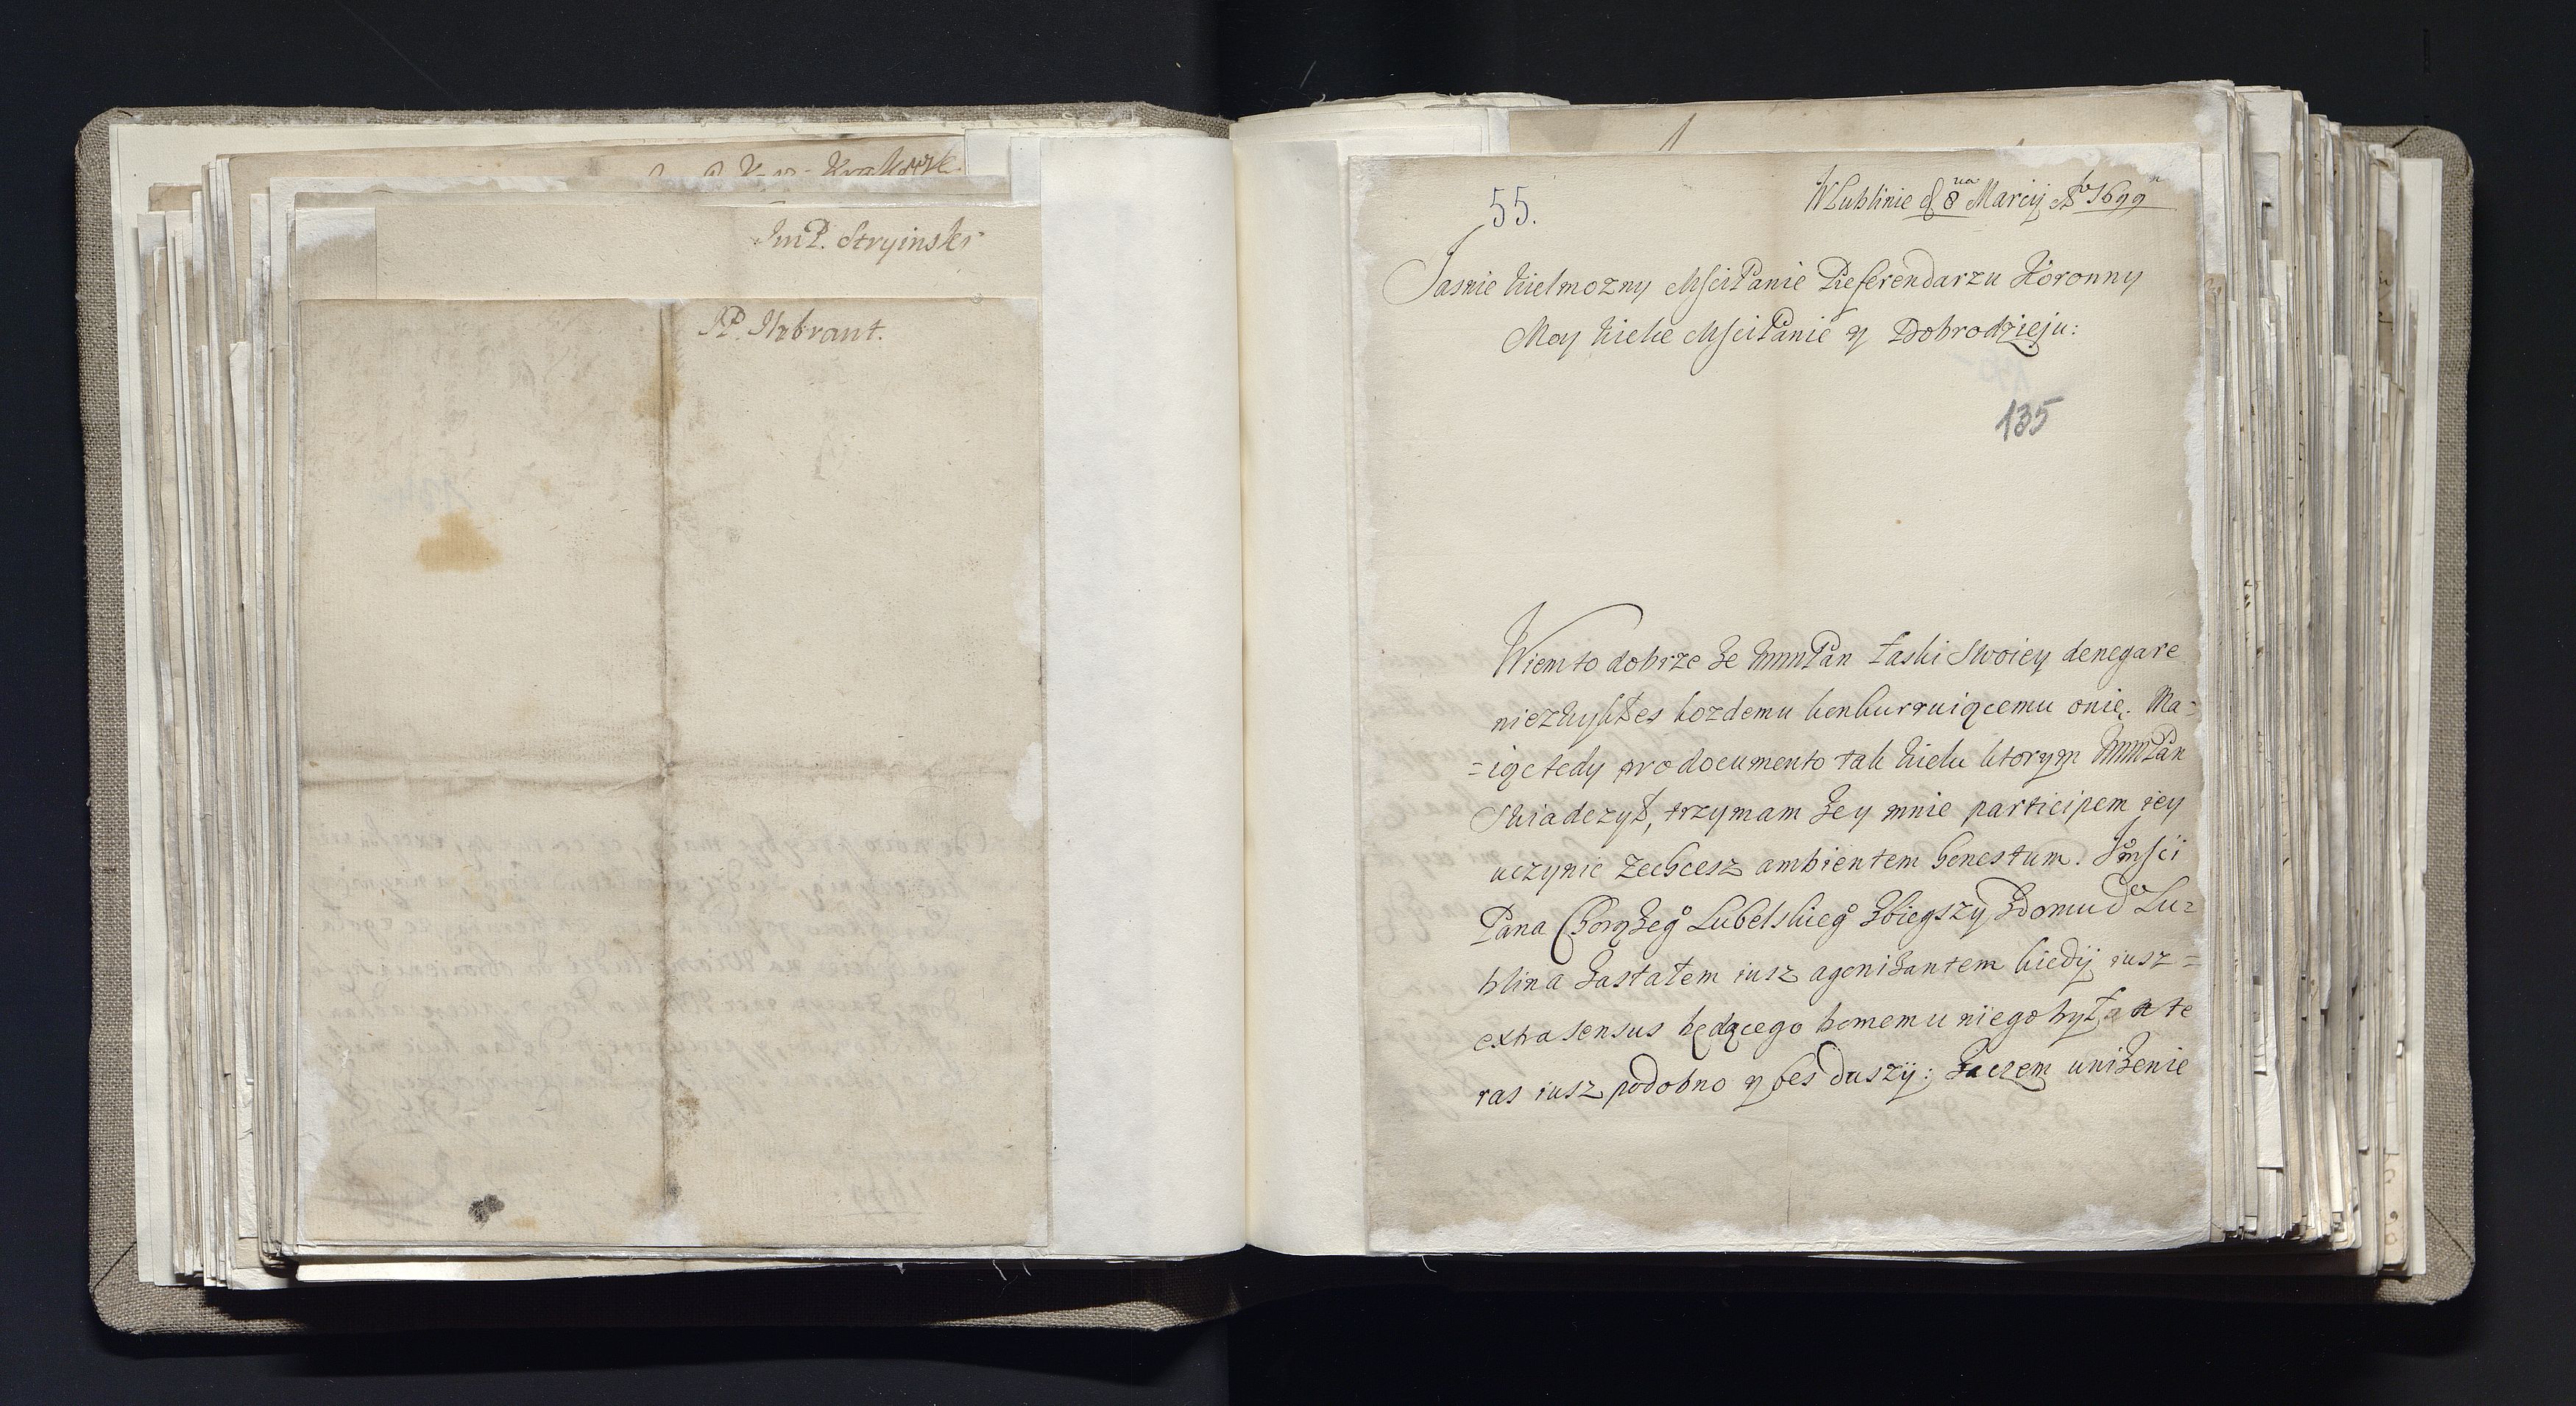 Krakowsk.
ImP. Stryinski
JP. Ihbrant.
55.
WLublinie d 8va Marcij Ao 1699
Jasnie Wielmozny MsciPanie Referendarzu Koronny
Moy Wielce MsciPanie y Dobrodzieju:
135
Wiem to dobrze ze WMMPan łaski Swoiey denegare
niezwykłes kozdemu konkurruiącemu onię. Ma=
=iąc tedy pro documento tak wielu ktorym WMMPan
Swiadczył, trzymam zey mnie participem iey
uczynic zechcesz ambientem honestum. Jmsci
Pana Chorążego Lubelskiego zbiegszy zdomu do Lu=
blina zastałem iusz agonizantem kiedy iusz=
extra sensus będącego bomemu niego był a te
ras iusz podobno y bes duszy: zaczem unizenie